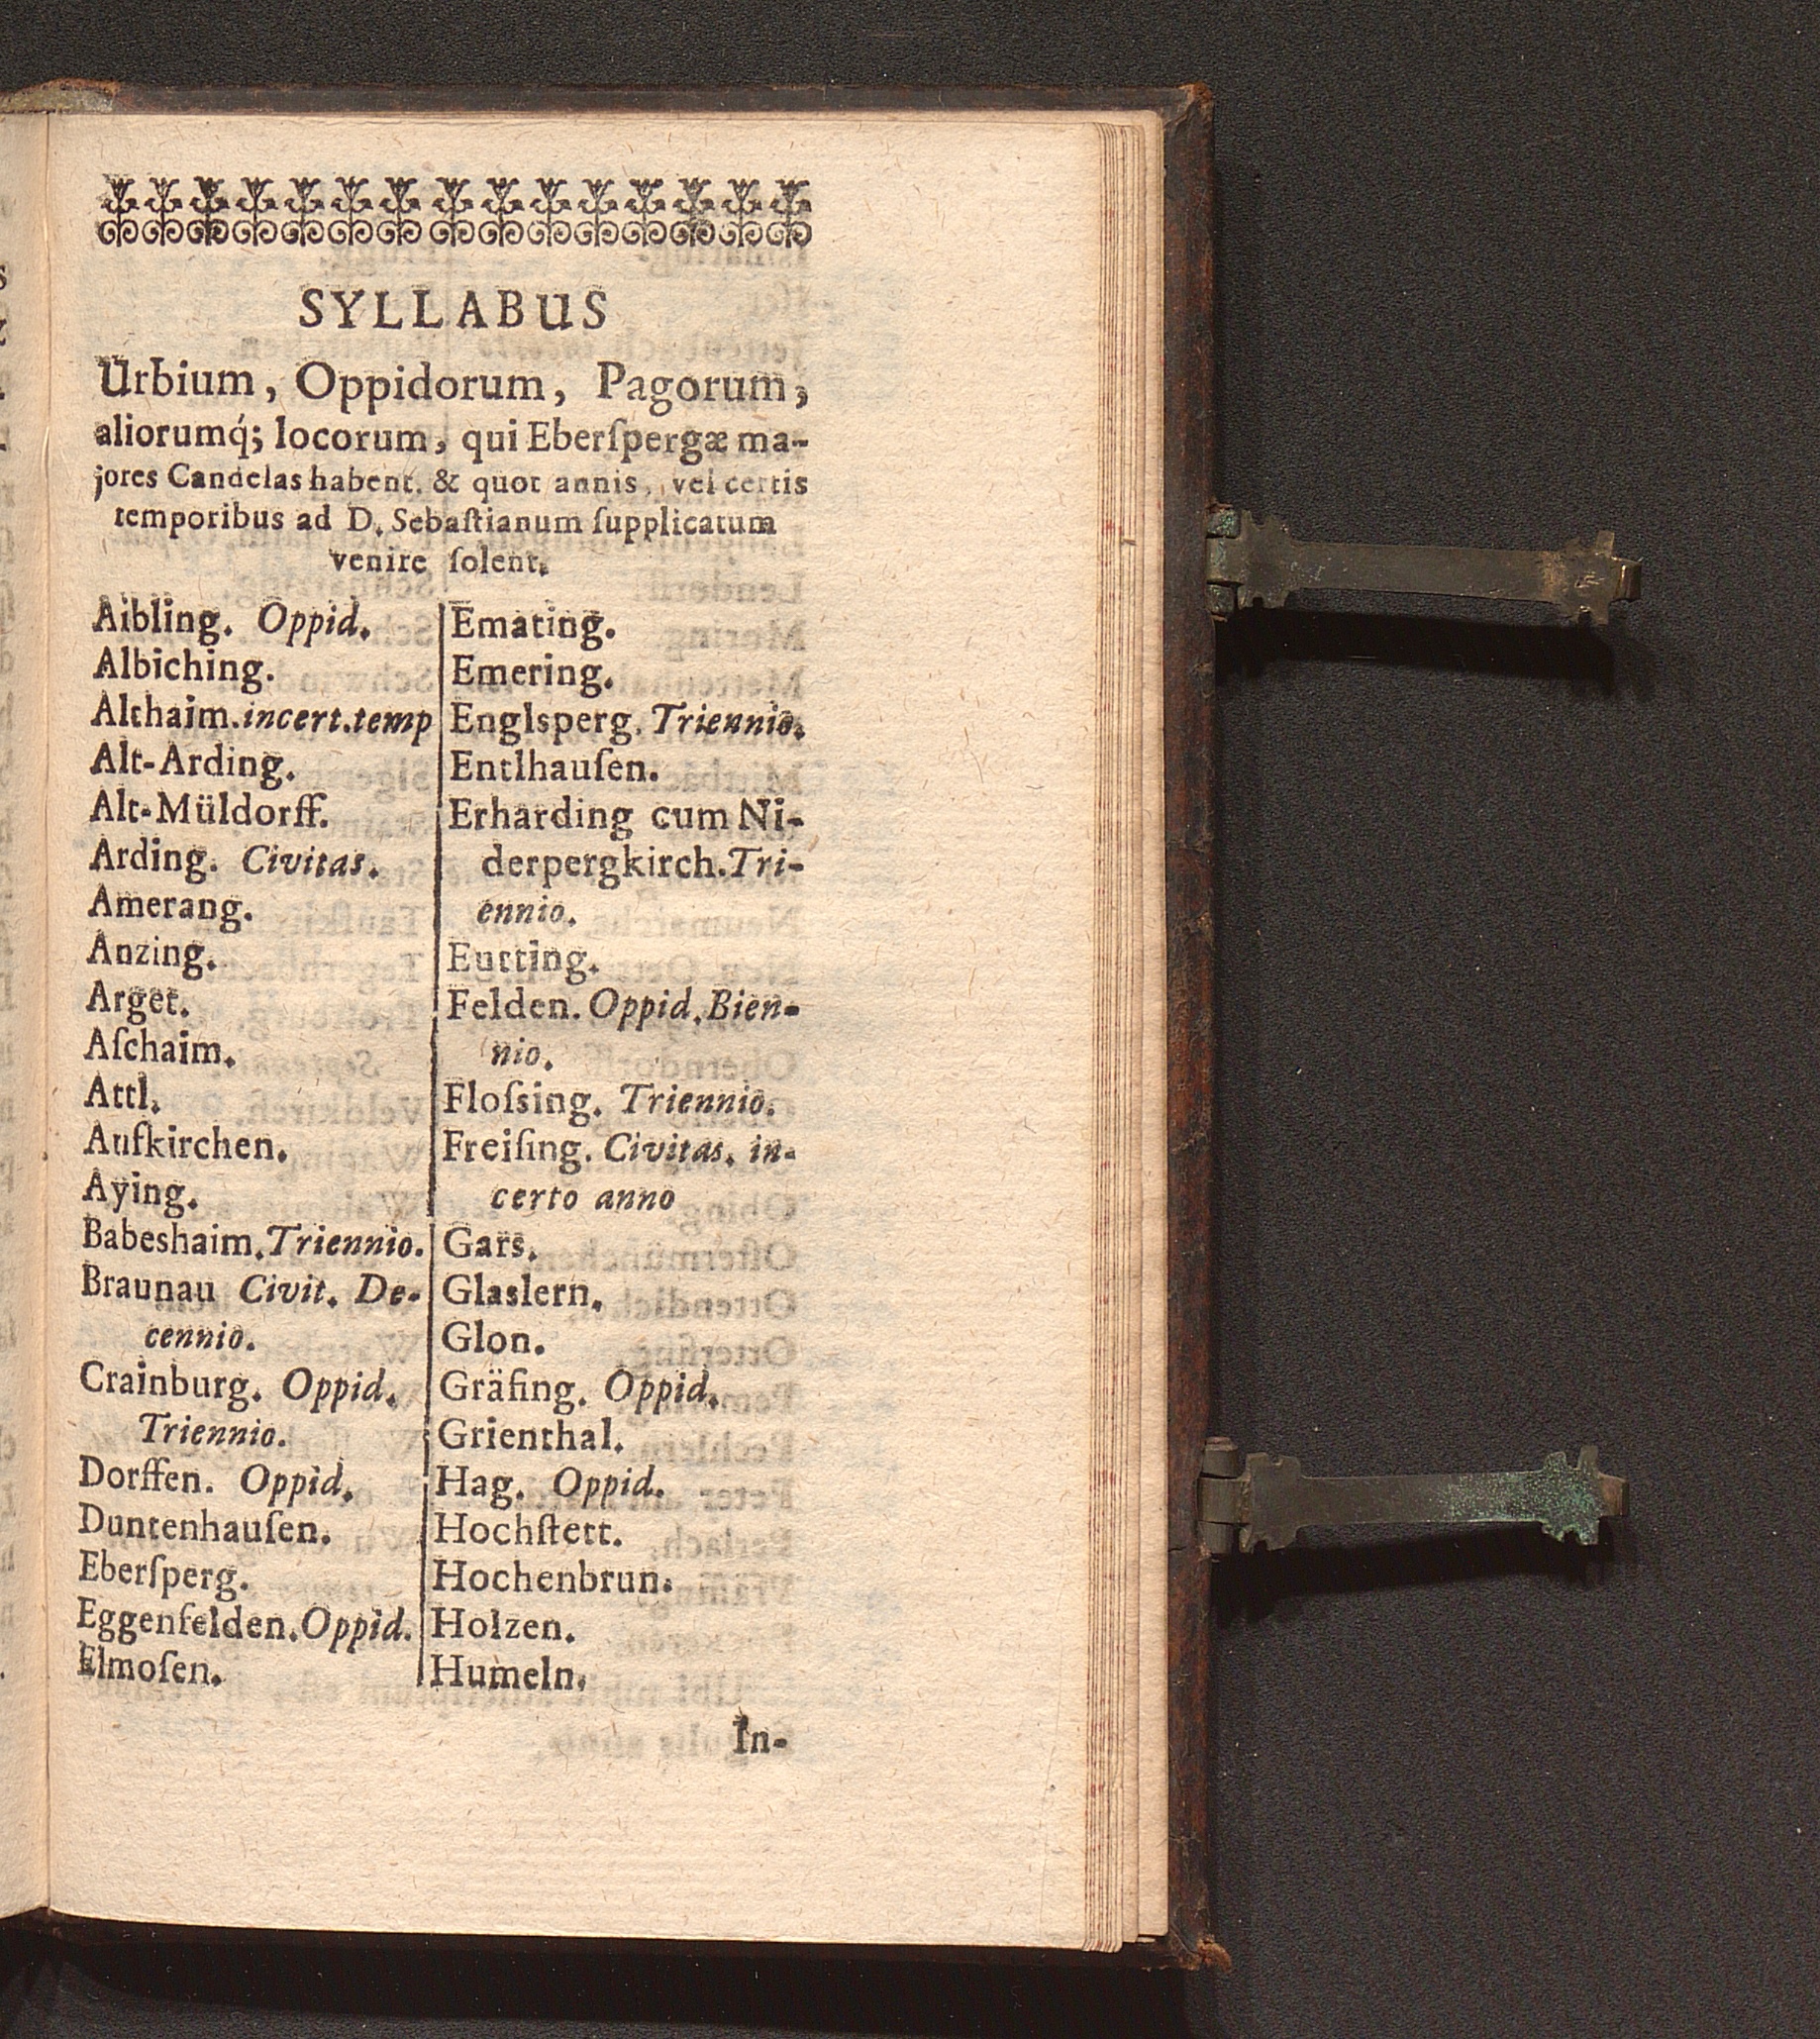 SYLLABUS
Urbium, Oppidorum, Pagorum,
aliorumq́; locorum, qui Eberſpergæ ma-
jores Candelas habent. & quot annis, vel certis
temporibus ad D. Sebaſtianum ſupplicatum
venire ſolent.
Aibling. Oppid.
Albiching.
Althaim. incert. temp
Alt-Arding.
Alt-Müldorff.
Arding. Civitas.
Amerang.
Anzing.
Arget.
Aſchaim.
Attl.
Aufkirchen.
Aying.
Babeshaim. Triennio.
Braunau Civit. De-
cennio.
Crainburg. Oppid.
Triennio.
Dorffen. Oppid.
Duntenhauſen.
Eberſperg.
Eggenfelden. Oppid.
Elmoſen.
Emating.
Emering.
Englsperg. Triennio.
Entlhauſen.
Erharding cum Ni-
derpergkirch. Tri-
ennio.
Eutting.
Felden. Oppid. Bien-
nio.
Floſsing. Triennio.
Freiſing. Civitas. in-
certo anno
Gars.
Glaslern.
Glon.
Gräfing. Oppid.
Grienthal.
Hag. Oppid.
Hochſtett.
Hochenbrun.
Holzen.
Humeln.
In-